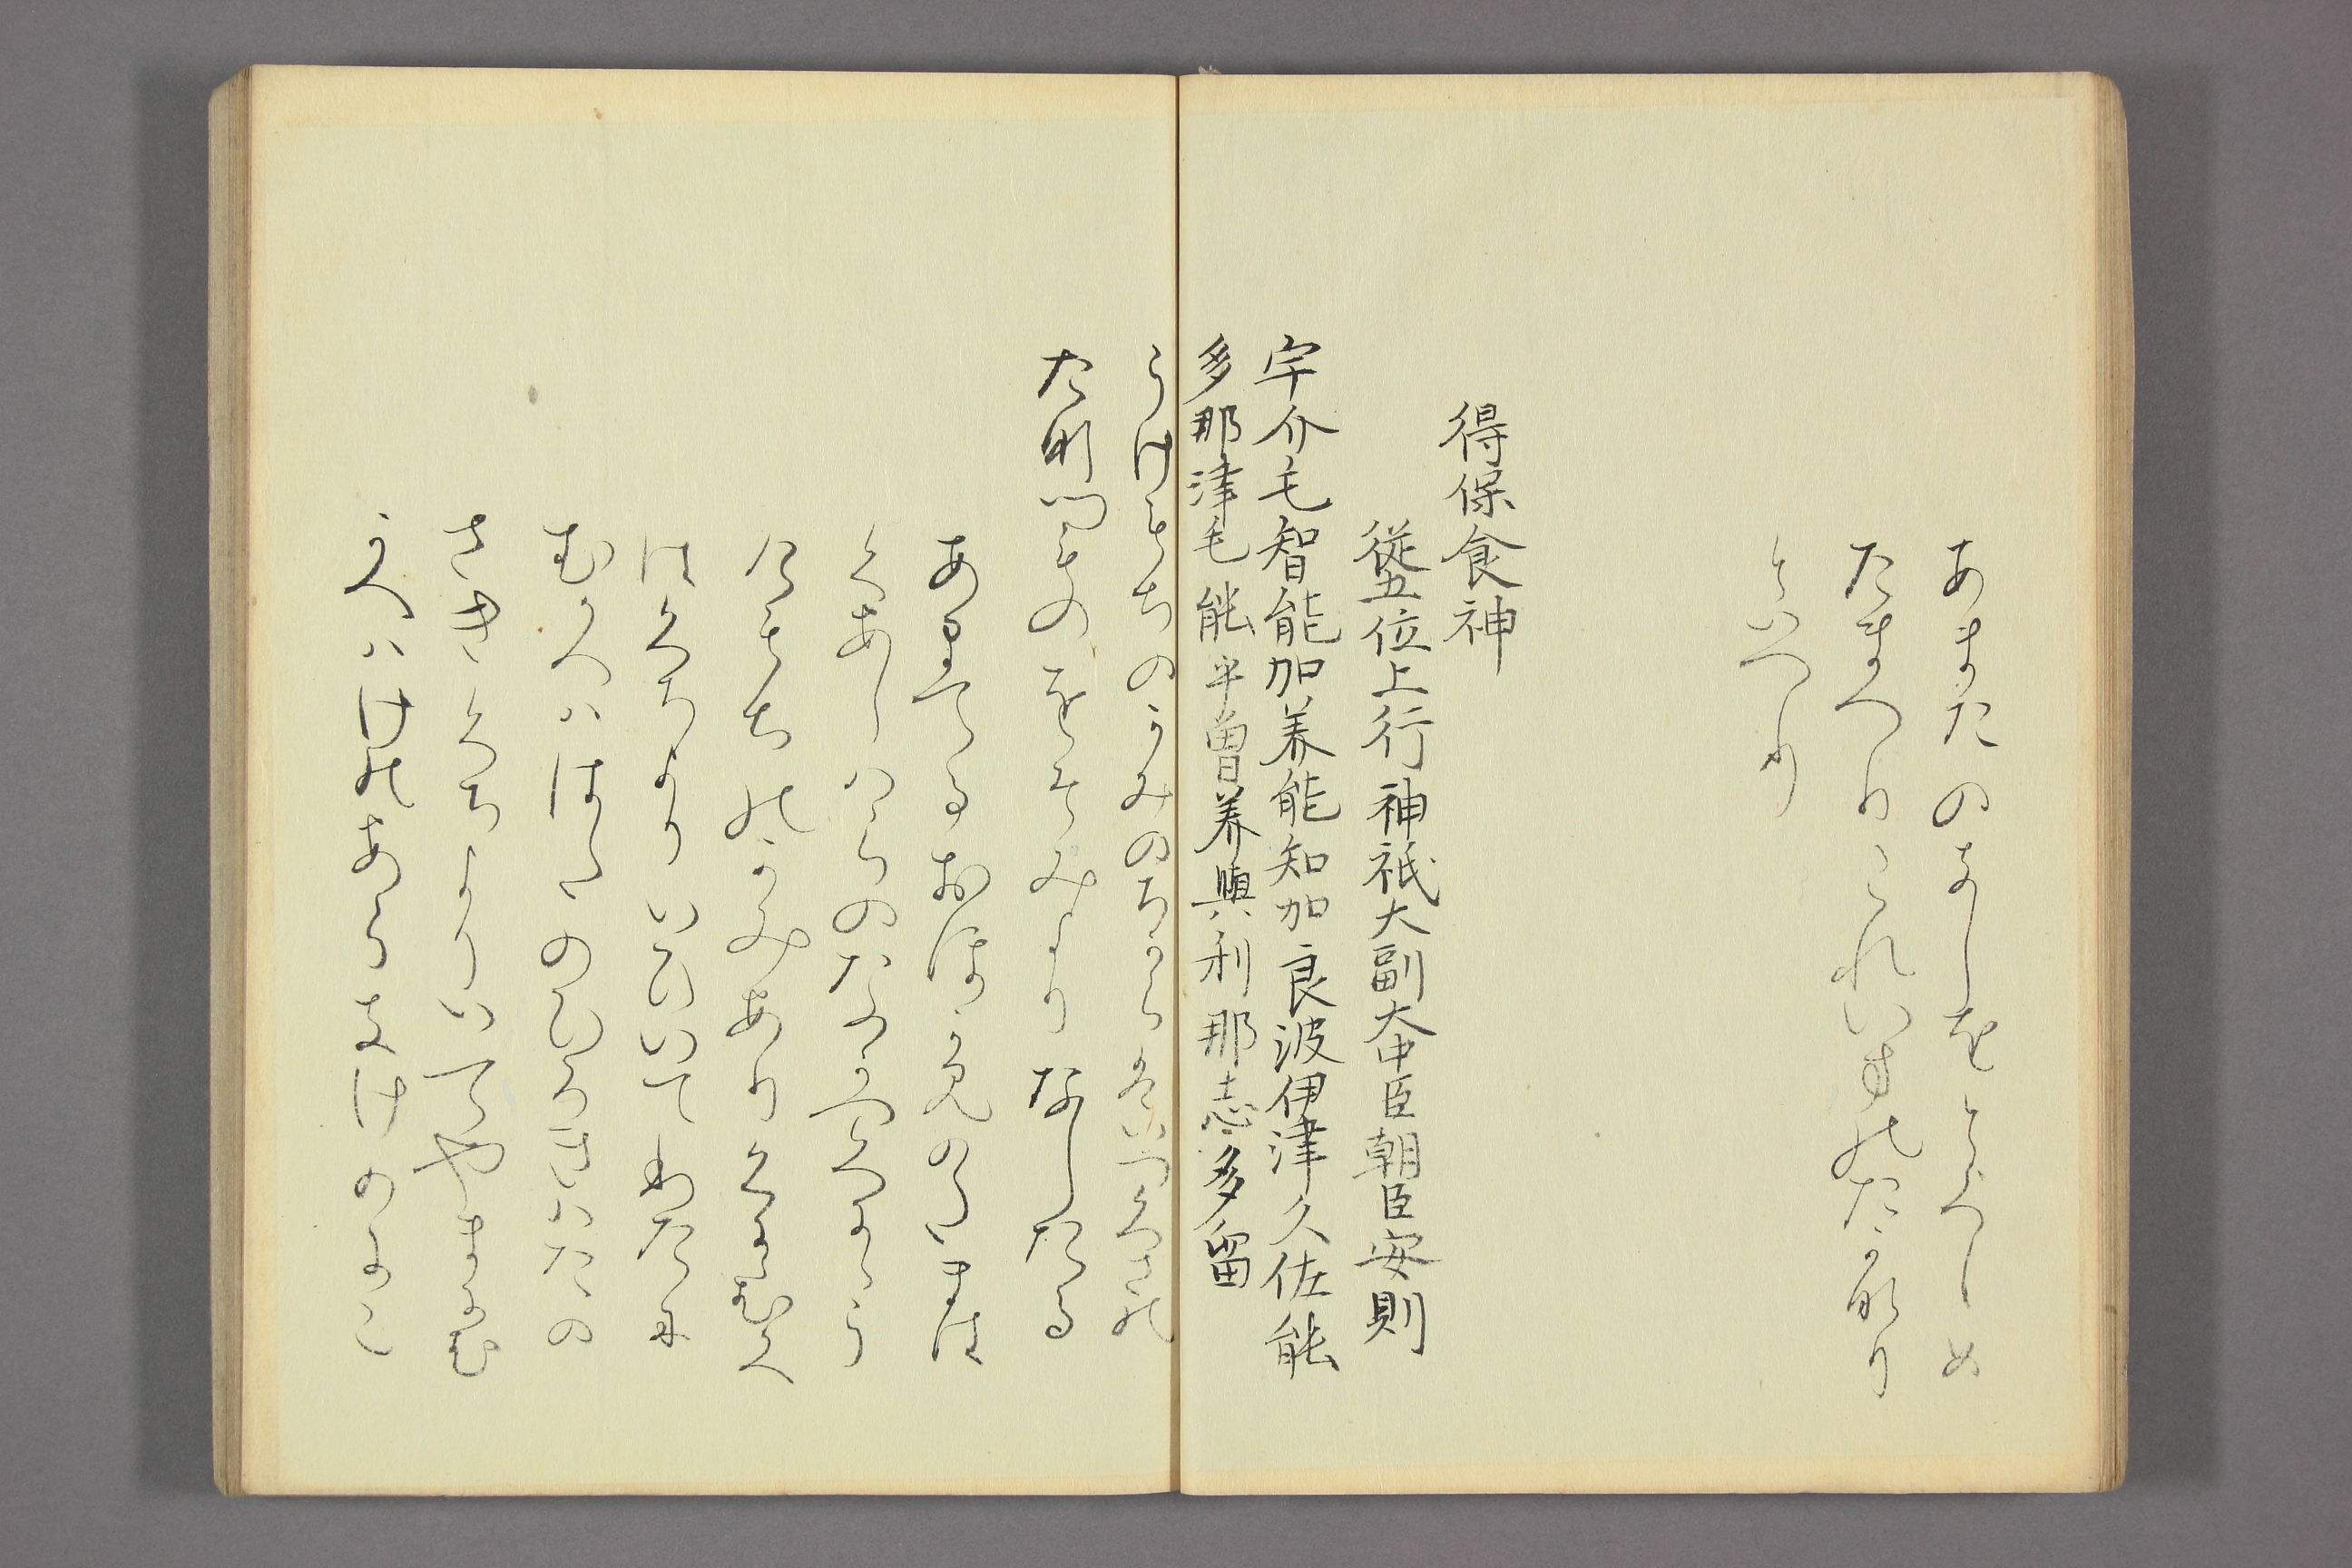 あまたのましをとらへしめ
たまへりこれいまのたかなり
といへり
得保食神
從五位上行神祇大副大中臣朝臣安則
宇介毛智能加美能知加良波伊津久佐能
多那津毛能乎曽美與利那志多留
うけもちのかみのちからはいつくさの
たなつものをそみよりなしたる
あまてるおほかみのたまは
くあしはらのなかつくにゝう
けもちのかみありくにゝむかへ
はくちよりいひいてまたうみ
にむかへははたのひろはたの
さきくちよりいてやまにむ
かへはけのあらきけのにこ